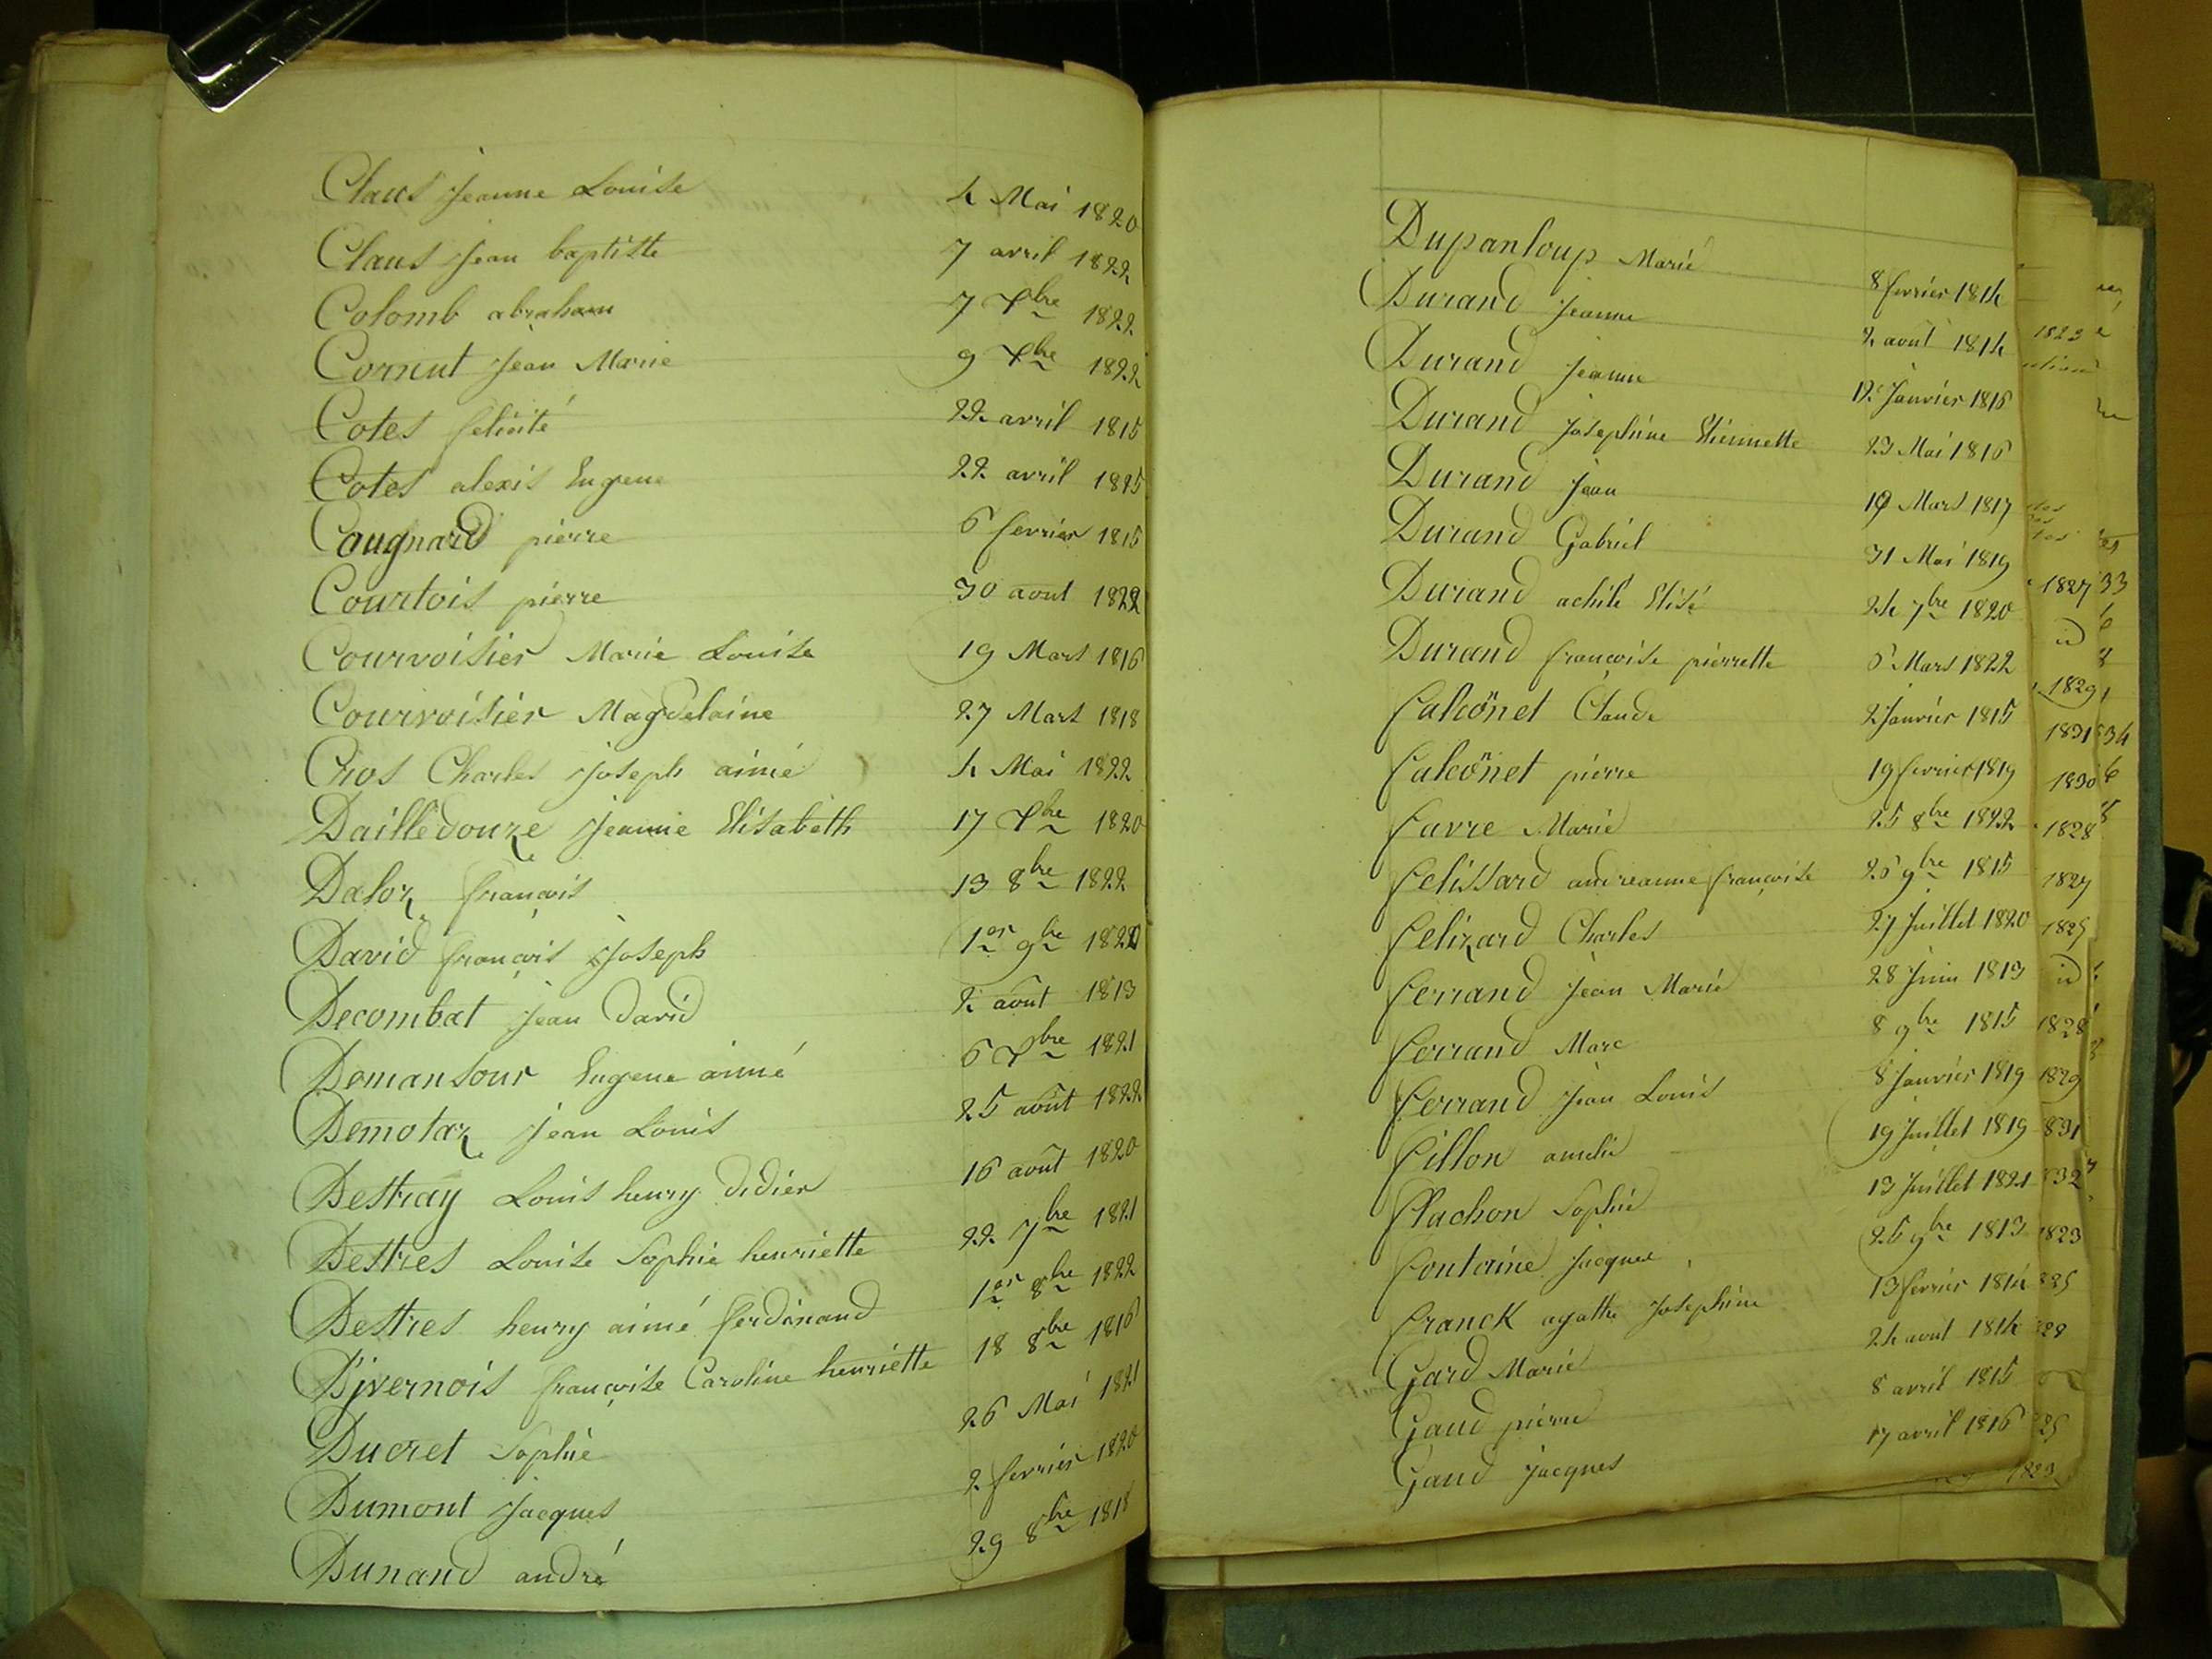 Claus Jeanne Louise 4 Mai 1820
Claus Jean baptiste 7 avril 1822
Colomb abraham 7 Xbre 1822
Cornut Jean Marie 9 Xbre 1822
Cotes felicité 22 avril 1815
Cotes alexis Eugene 22 avril 1815
Cougnard pierre 6 fevrier 1815
Courtois pierre 30 aout 1822
Courvoisier Marie Louise 19 Mars 1816
Courvoisier Magdelaine 27 Mars 1818
Cros Charles Joseph aimé 4 Mai 1822
Dailledouze Jeanne Elisabeth 17 Xbre 1820
Daloz françois 13 8bre 1822
David françois Joseph 1er 9bre 1822
Decombat Jean David 2 août 1813
Demansour Eugene aimé 6 Xbre 1821
Demotaz Jean Louis 25 août 1822
Destray Louis henry didier 16 août 1820
Destres Louise Sophie henriette 22 7bre 1821
Destres henry aimé ferdinand 1er 8bre 1822
D'jvernois françoise Caroline henriette 18 8bre 1816
Ducret Sophie 26 Mai 1821
Dumont Jacques 2 fevrier 1820
Dunand andré 29 8bre 1818
Dupanloup Marie 8 fevrier 1814
Durand Jeanne 2 août 1814
Durand Jeanne 12 Janvier 1816
Durand Josephine Etiennette 23 Mai 1816
Durand Jean 19 Mars 1817
Durand Gabriel 31 Mai 1819
Durand achile Elisé 24 7bre 1820
Durand françoise pierrette 6 Mars 1822
falconet Claude 2 Janvier 1815
falconet pierre 19 fevrier 1819
favre Marie 25 8bre 1822
felissard andreanne françoise 26 9bre 1815
felizard Charles 27 Juillet 1820
ferrand Jean Marie 28 Juin 1813
ferrand Marc 8 9bre 1815
ferrand Jean Louis 8 Janvier 1819
fillon amelie 19 Juillet 1819
flachon Sophie 13 Juillet 1821
fontaine Jacques 25 9bre 1813
franck agathe Josephine 13 fevrier 1814
Gard Marie 24 août 1814
Gaud pierre 8 avril 1815
Gaud Jacques 17 avril 1816
1823
1827
id
1829
1831
1830
1828
1827
1825
id
1828
1829
831
832
1823